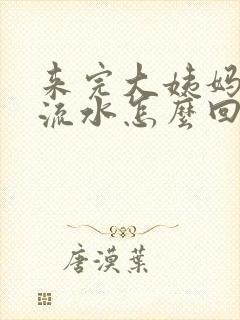 来完大姨妈
流水怎麼回
唐漠葉